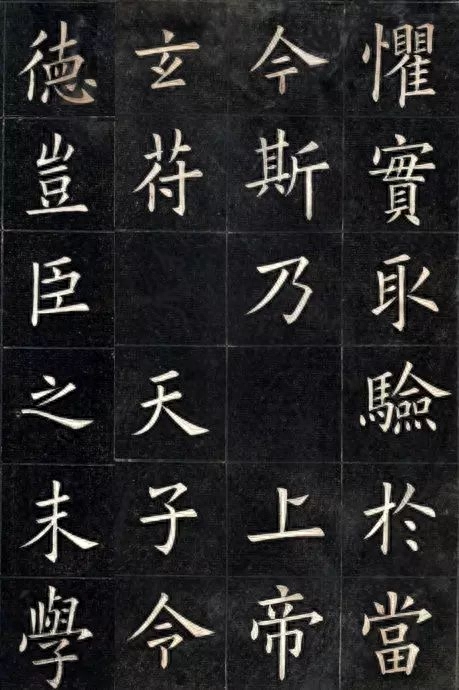 懼實取驗於當
今斯乃 上帝
玄苻 天子令
德豈臣之末學